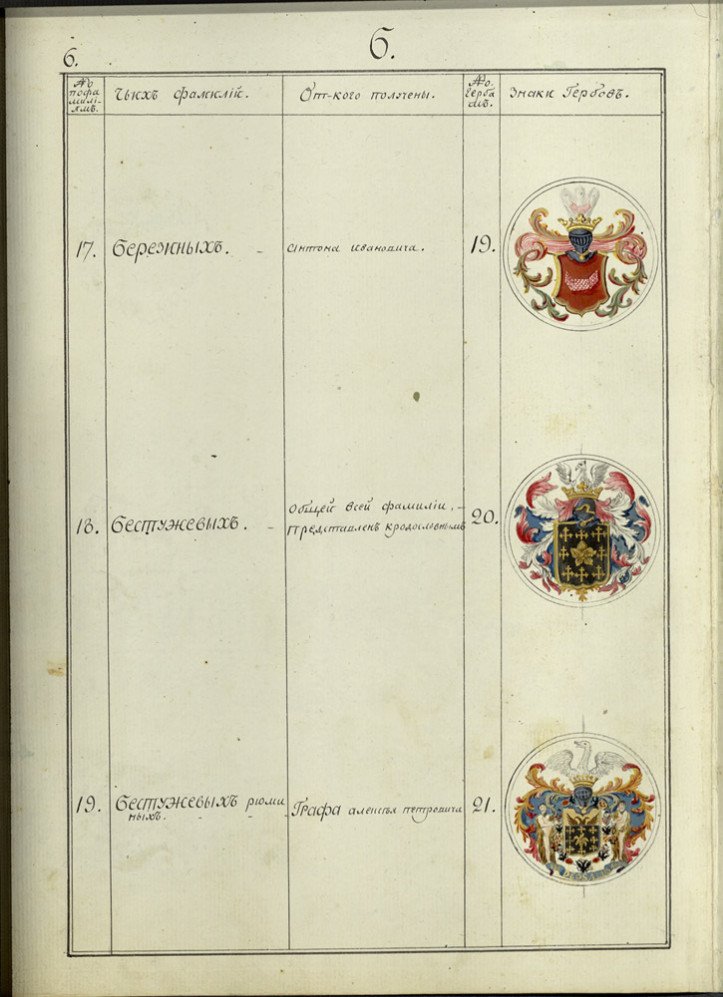 6.
Б.
№ пофамиліямъ.
Чьихъ фамилій.
От-кого получены.
№ гербамъ.
Знаки Гербовъ.
17.
Бережныхъ.
Антона Ивановича.
19.
18.
Бестужевыхъ.
Общей всей фамиліи,
представленъ кродословнымъ
20.
19.
Бестужевыхъ рюми
ныхъ.
Графа алексѣя петровича
21.